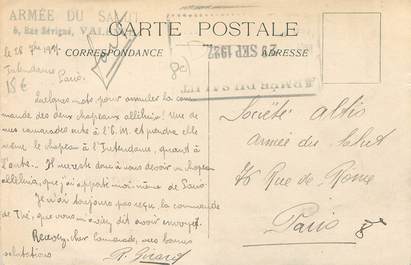 ARMÉE DU SALUT
6, Rue Sévigné, VALE
CARTE POSTALE
CORRESPONDANCE
ADRESSE
29 SEP 1927
ARMÉE DU SALUT
le 28 7bre 1927
Intendance
Paris.
15 €
8e
Quelques mots pour annuler la com-
mande des deux chapeaux alléluia! Une de
nos camarades entre à l'E.M. et prendra elle
même le chapeau à l'Intendance, quant à
l'autre. Il me reste donc à vous devoir un chapeau
alléluia, que j'ai apporté moi-même de Paris.
Je n'ai toujours pas reçu la commande
de Thé, que vous m'aviez dit avoir envoyé.
Recevez, cher Camarade, mes bonnes
salutations
R. Girard
Société Altis
Armée du Salut
76 Rue de Rome
Paris 8e